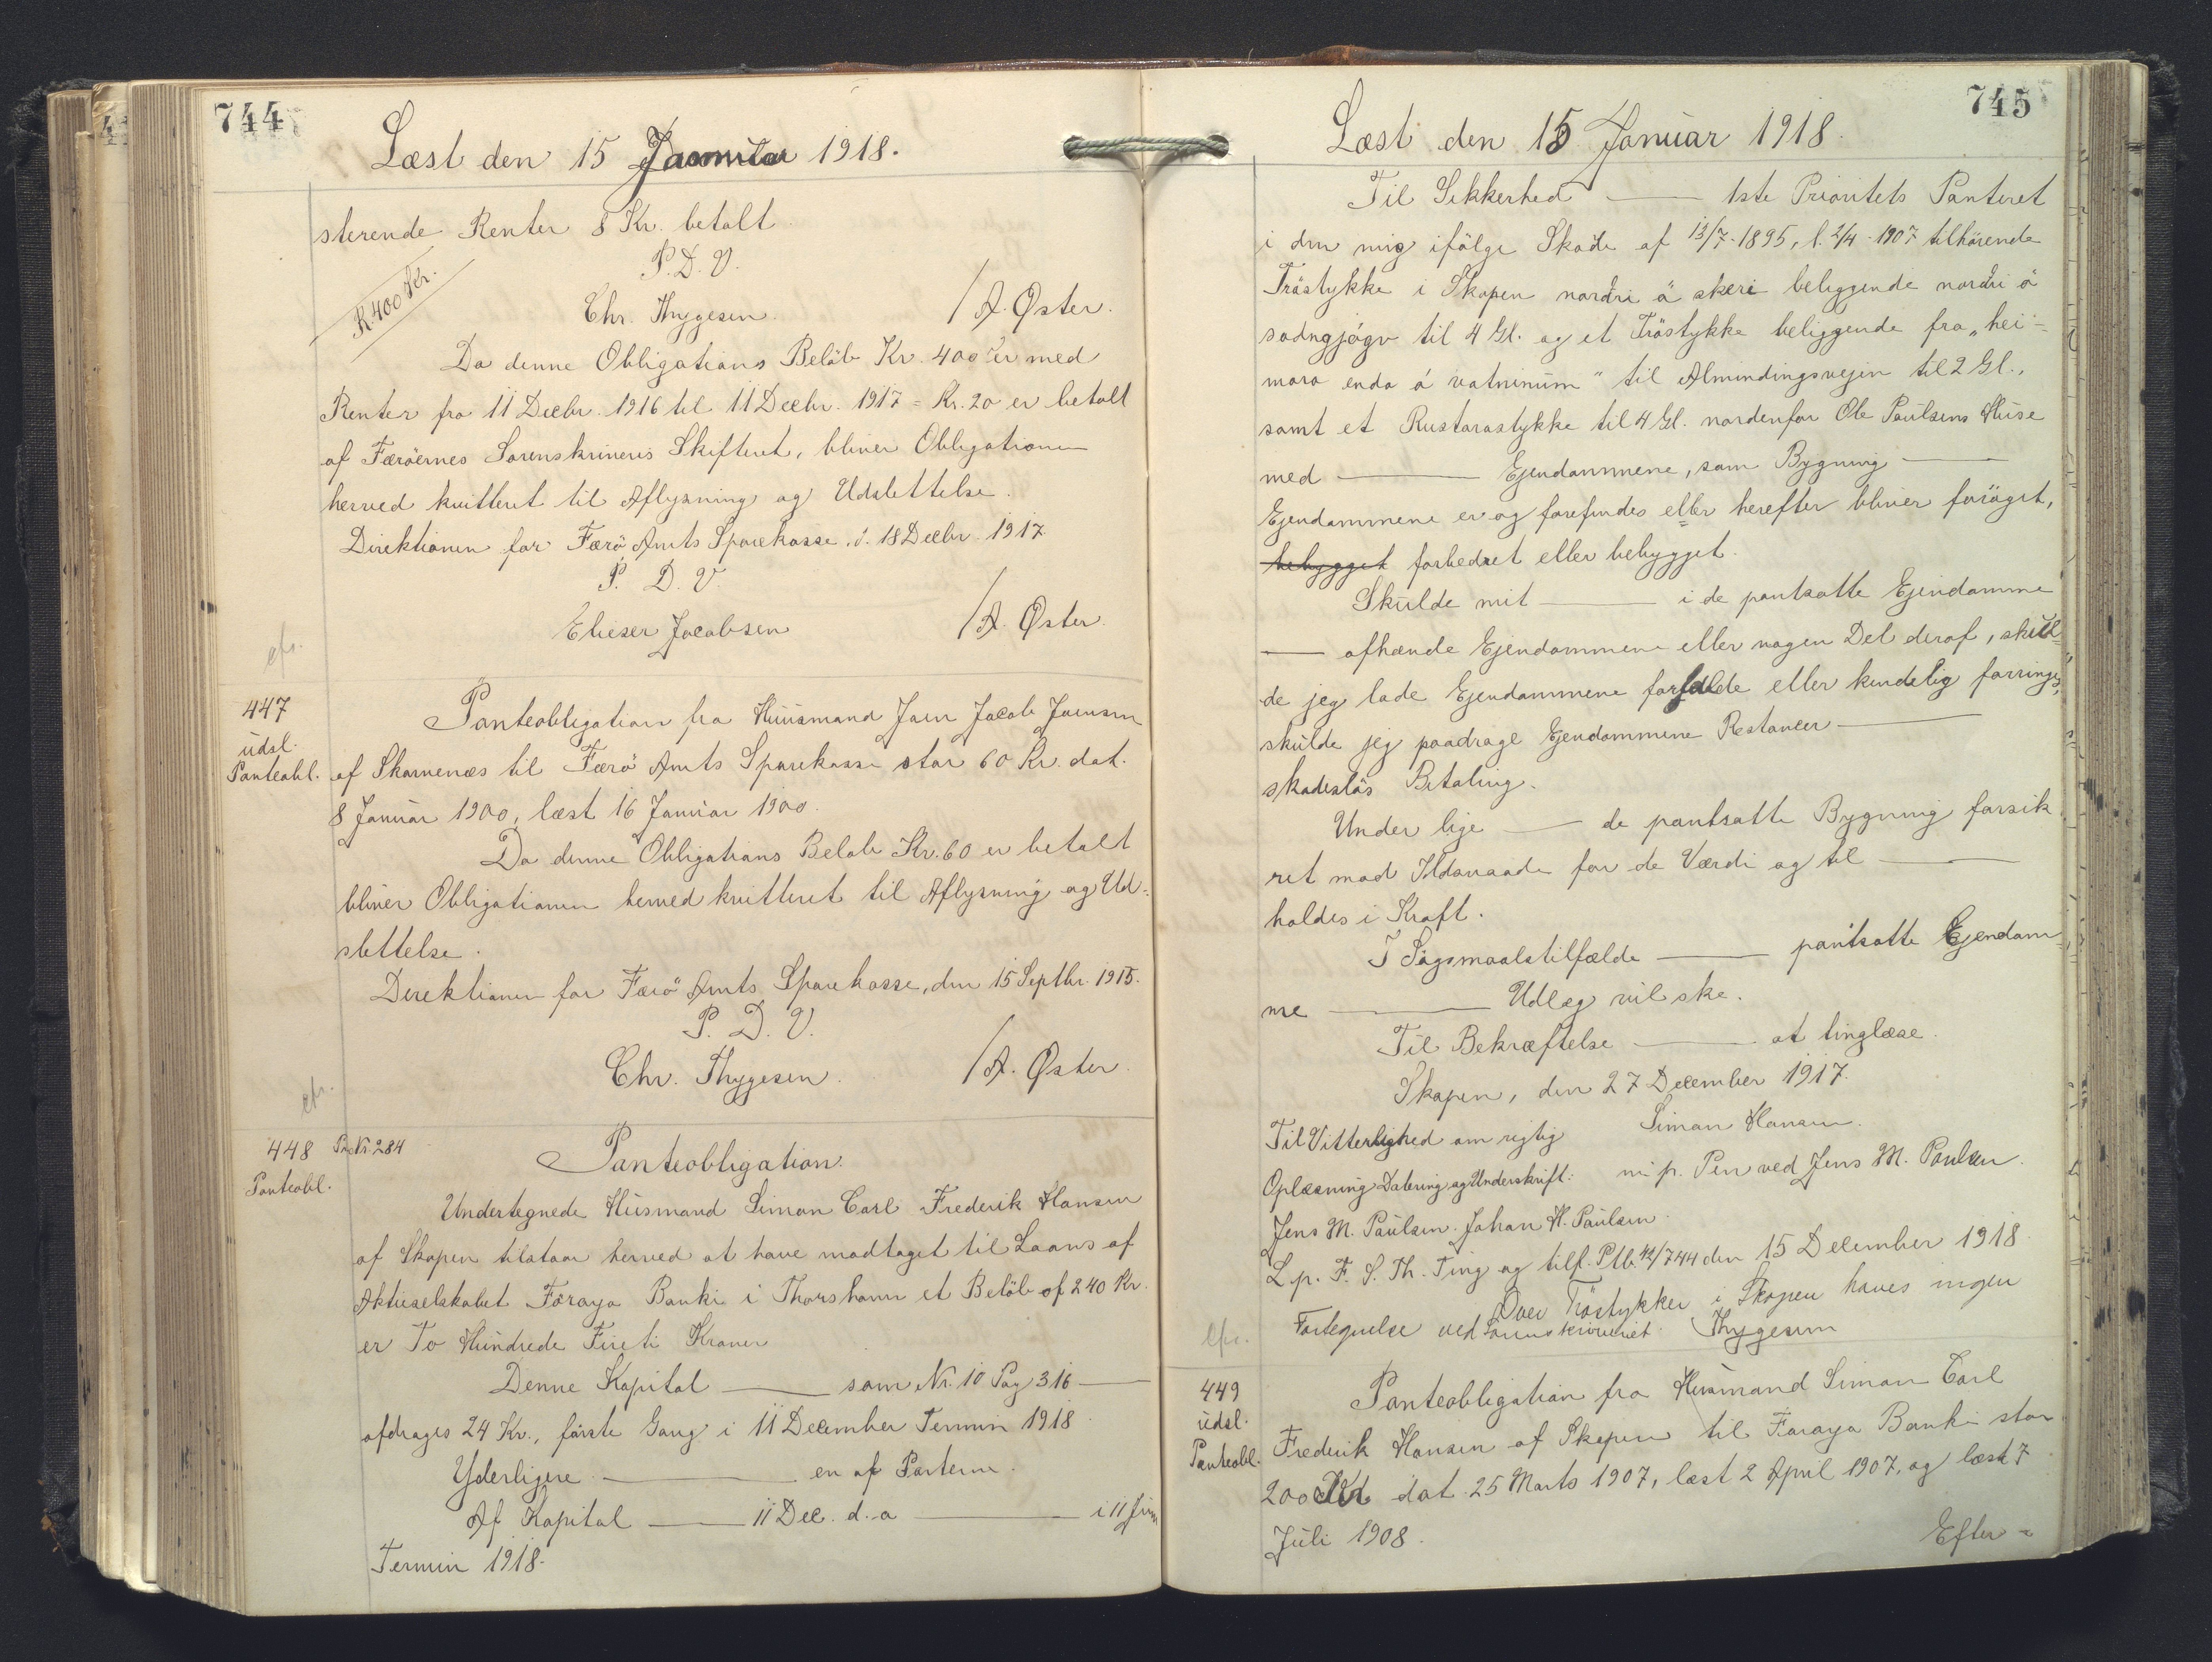 744
Læst den 15 Januar 1918.
sterende Renter 8 Kr. betalt
P. D. V.
K 400 Kr.
Chr. Thygesen. / A. Øster.
Da denne Obligations Beløb Kr. 400 er med
Renter fra 11 Decbr. 1916 til 11 Decbr. 1917 = Kr. 20 er betalt
af Færøernes Sorenskriveris Skifteret, bliver Obligationen
herved kvitteret til Aflysning og Udslettelse.
Direktionen for Færø Amts Sparekasse, d. 18 Decbr. 1917
P. D. V
Elieser Jacobsen / A. Øster.
cfr.
447
udsl.
Panteobl.
Panteobligation fra Huusmand Joen Jacob Joensen
af Skamenæs til Færø Amts Sparekasse stor 60 Kr. dat.
8 Januar 1900, læst 16 Januar 1900.
Da denne Obligations Beløb Kr. 60 er betalt
bliver Obligationen herved kvitteret til Aflysning og Ud-
slettelse.
Direktionen for Færø Amts Sparekasse, den 15 Septbr. 1915.
P. D. V.
Chr. Thygesen. / A. Øster.
cfr.
448 Nr. 284
Panteobl.
Panteobligation.
Undertegnede Husmand Simon Carl Frederik Hansen
af Skopen tilstaar herved at have modtaget til Laans af
Aktieselskabet Føroya Banki i Thorshavn et Beløb af 240 Kr.
er To Hundrede Fireti Kroner
Denne Kapital — som Nr. 10 Pag 316 —
afdrages 24 Kr., første Gang i 11 December Termin 1918
Yderligere — en af Parterne.
Af Kapital — 11 Dec. d. a — i 11 Juni
Termin 1918.
745
Læst den 15 Januar 1918.
Til Sikkerhed — 1ste Prioritets Panteret
i den mig ifølge Skøde af 13/7 1895, l. 2/4 1907 tilhørende
Trøstykke i Skopen nordri á skeri beliggende nordri á
sodngjógv til 4 Gl. og et Trøstykke beliggende fra "hei-
mara enda á vatninum" til Almindingsvejen til 2 Gl.,
samt et Rustarastykke til 4 Gl. nordenfor Ole Paulsens Huse
med — Ejendommene, som Bygning —
Ejendommene er og forefindes eller herefter bliver forøget,
bebygget forbedret eller bebygget.
Skulde mit — i de pantsatte Ejendomme
— afhænde Ejendommene eller nogen Del deraf, skul-
de jeg lade Ejendommene forfalde eller kendelig forringes,
skulde jeg paadrage Ejendommene Restancer —
skadesløs Betaling.
Under lige — de pantsatte Bygning forsik
ret mod Ildsvaade for de Værdi og til —
holdes i Kraft.
I Søgsmaalstilfælde — pantsatte Ejendom
me — Udlæg vil ske.
Til Bekræftelse — at tinglæse.
Skopen, den 27 December 1917.
Til Vitterlighed om rigtig Simon Hansen.
Oplæsning Datering og Underskrift: m. p. Pen ved Jens M. Poulsen.
Jens M. Paulsen. Johan H. Paulsen.
L. p. F. S. Th. Ting og tilf. Ptb. 42/744 den 15 December 1918
Over Trøstykker i Skopen haves ingen
Fortegnelse ved Sorenskriveriet. Thygesen
cfr.
449
udsl.
Panteobl.
Panteobligation fra Husmand Simon Carl
Frederik Hansen af Skopen til Føroya Banki stor
200 Kr dat. 25 Marts 1907, læst 2 April 1907, og læst 7
Juli 1908.
Efter-